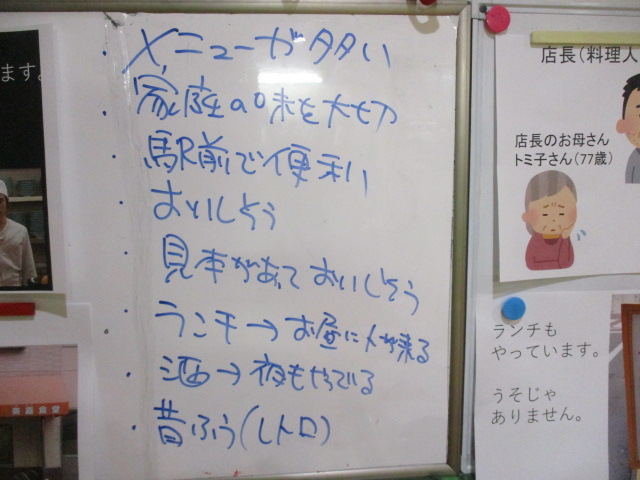 ・メニューが多い
・家庭の味を大切
・駅前で便利
・おいしそう
・見本があっておいしそう
・ランチ→お昼に人が来る
・酒→夜もやっている
・昔ふう(レトロ)
ます。
食堂
店長(料理人
店長のお母さん
トミ子さん(77歳)
ランチも
やっています。
うそじゃ
ありません。